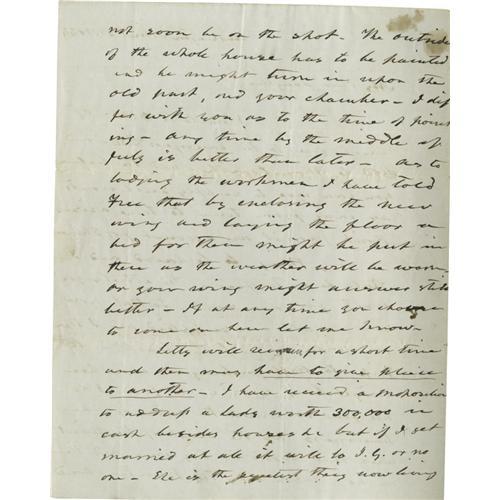 not soon be on the shot. The outside
of the whole house has to be painted
and he might turn in upon the
old part, and your chamber - I dif
fer with you as to the time of paint
ing - any time by the middle of
July is better than later - as to
lodging the workmen I have told
Free that by enclosing the new
wing and laying the floor a
bed for them might be put in
there as the weather will be warm
or your wing might answer still
better - If at any time you choose
to come on here let me know -
Letty will reign for a short time
and then may have to give place
to another - I have recieved a proposition
to address a lady worth 300,000 in
cash besides houses &c but if I get
married at all it will to J. G. or no
one - She is the the now living